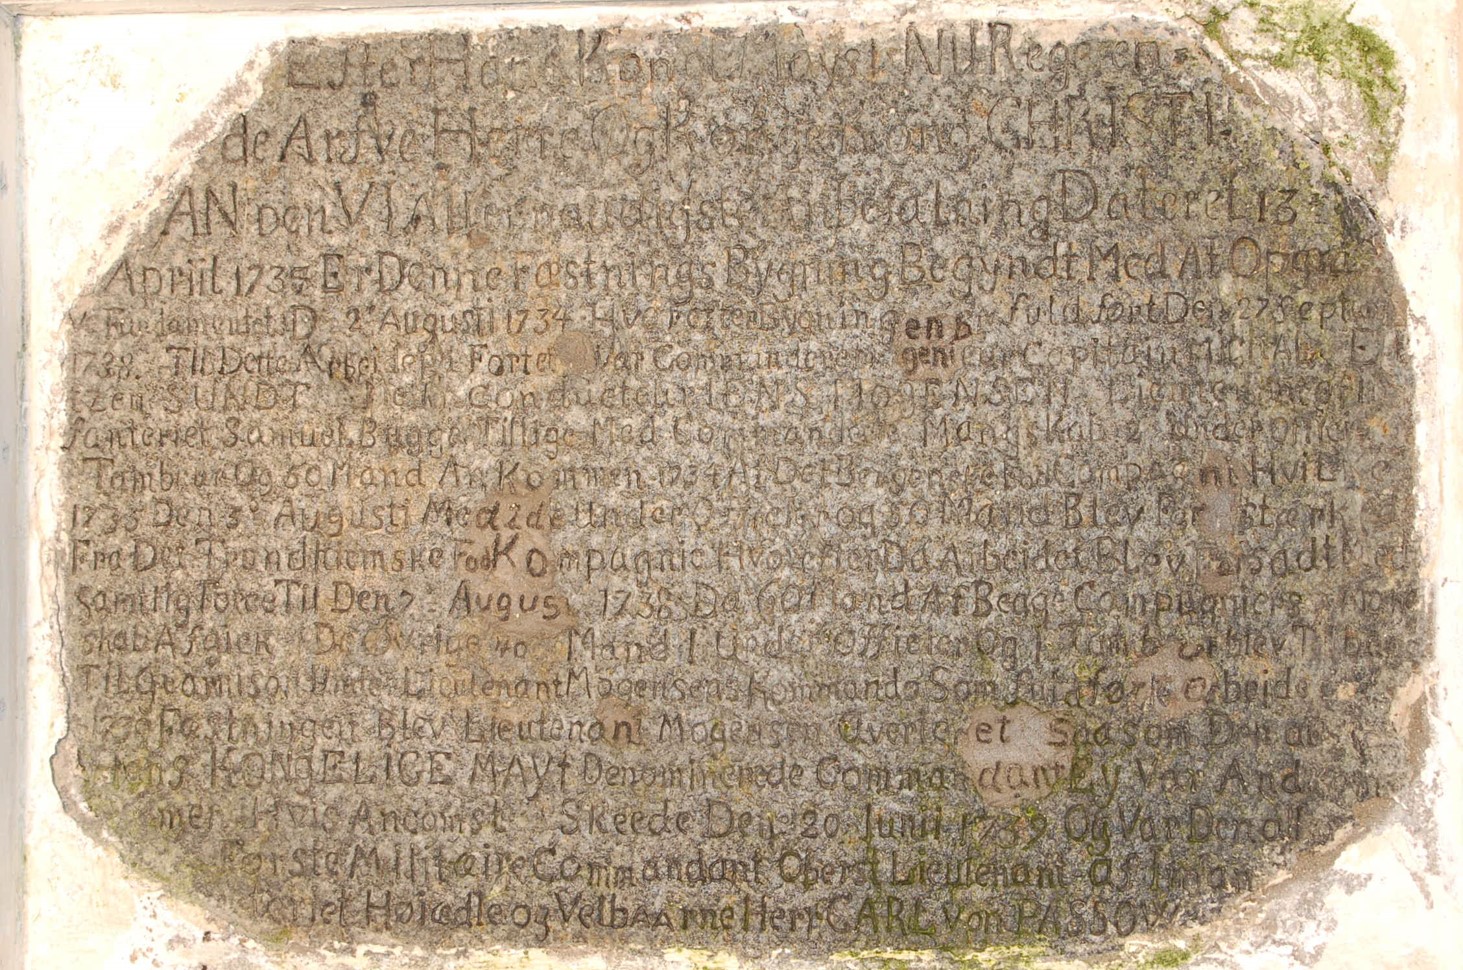 Efter Hans Kong May st NU Regeren
de Arfve Herre Og Kongen Kong CHRISTI
AN Den VI Allernaadigste Anbefalning Dateret 13
Apriil 1735 Er Denne Fæstnings Bygning Begyndt Med At Opgra
ve Fundamentet D 2 Augusti 1734 Hvorefter Bygningen B fuldført Den 27 Septem
1738. Til Dette Arbeide på Fortet Var Commanderet Ingenieur Capitain Michael
zen SUNDT Conducteur IENS MOGENSEN Lieutenanten
fanteriet Samuel Bugge Tillige Med Commanderet Mandskab 2 Under Officier
Tambour Og 60 Mand An Kommen 1734 Af Det Bergenske Compagni Hvilke
1735 Den 3 Augusti Med 2de Under Officier og 50 Mand Blev For stærk
Fra Det Trundhiemske Food Kompagnie Hvorefter Da Arbeidet Blev Fortsadt Med
samtlig Force Til Den 7 August 1738 Da 60 Mand Af Begge Compagniers Mand
skab Afgick De Øvrige 40 Mand 1 Under Officier Og 1 Tambour blev Tilbage
Til Guarnison Under Lieutenant Mogensens Kommando Som fuldførte Arbeidet
1739 Fæstningen Blev Lieutenant Mogensen Overleveret Saasom Den af
Hans KONGELIGE MAYt Denominerede Commandant Ey Var Ankom
men Hvis Ancomst Skeede Den 20 Junii 1739 Og Var Den al
Første Militaire Commandant Oberst Lieutenant af Infan
teriet Høiædle og Velbaarne Herr CARL von PASSOW